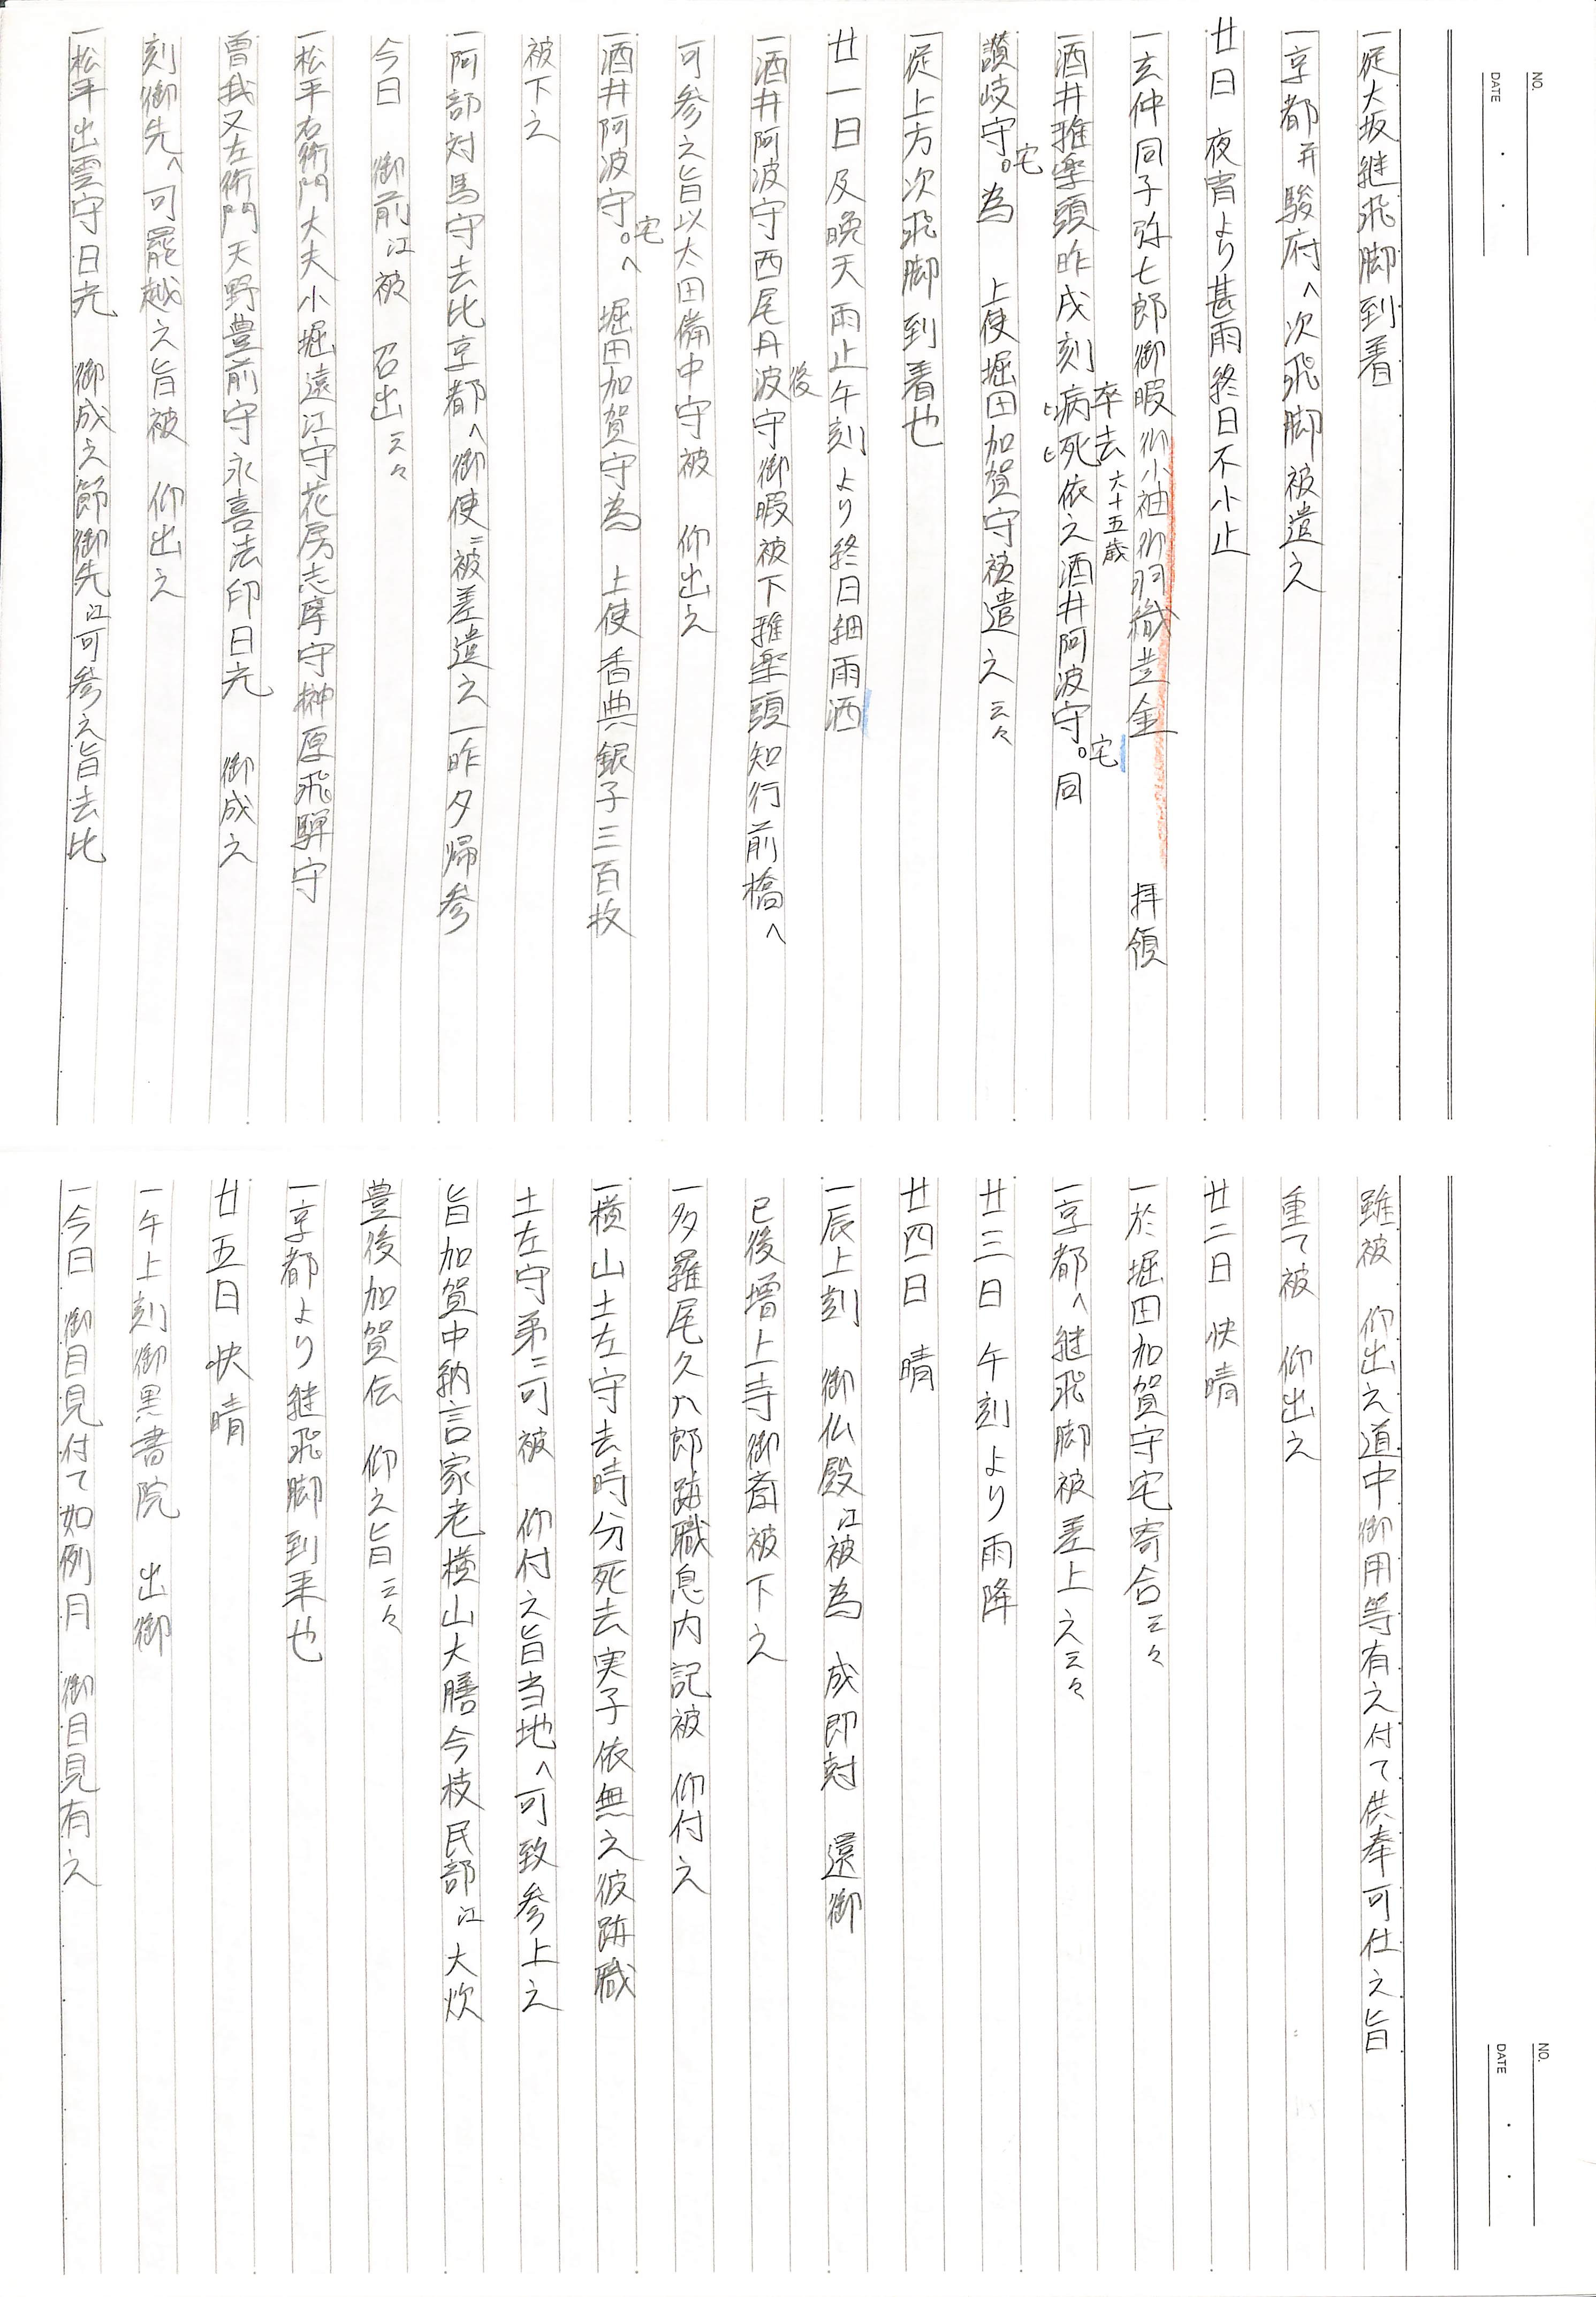 NO.
DATE
一従大坂継飛脚到着
一京都并駿府へ次飛脚被遣之
廿日 夜宵より甚雨終日不小止
一玄仲同子弥七郎御暇御小袖御羽織並金 拝領
卒去六十五歳
一酒井雅楽頭昨戌刻病死依之酒井阿波守。宅同
ヒ ヒ
讃岐守。宅為 上使堀田加賀守被遣之云々
一従上方次飛脚到着也
廿一日及晩天雨止午刻より終日細雨洒
後
一酒井阿波守西尾丹波守御暇被下雅楽頭知行前橋へ
可参之旨以太田備中守被 仰出之
一酒井阿波守。宅へ 堀田加賀守為 上使香典銀子三百枚
被下之
一阿部対馬守去比京都へ御使ニ被差遣之一昨夕帰参
今日 御前江被 召出云々
一松平右衛門大夫小堀遠江守花房志摩守榊原飛騨守
曽我又左衛門天野豊前守永喜法印日光 御成之
刻御先へ可罷越之旨被 仰出之
一松平出雲守日光 御成之節御先江可参之旨去比
NO.
DATE
雖被 仰出之道中御用等有之付て供奉可仕之旨
重て被 仰出之
廿二日 快晴
一於堀田加賀守宅寄合云々
一京都へ継飛脚被差上之云々
廿三日 午刻より雨降
廿四日 晴
一辰上刻 御仏殿江被為 成即刻 還御
已後増上寺御斎被下之
一多羅尾久八郎跡職息内記被 仰付之
一横山土左守去時分死去実子依無之彼跡職
土左守弟ニ可被 仰付之旨当地へ可致参上之
旨加賀中納言家老横山大膳今枝民部江大炊
豊後加賀伝 仰之旨云々
一京都より継飛脚到来也
廿五日 快晴
一午上刻御黒書院 出御
一今日 御目見付て如例月 御目見有之